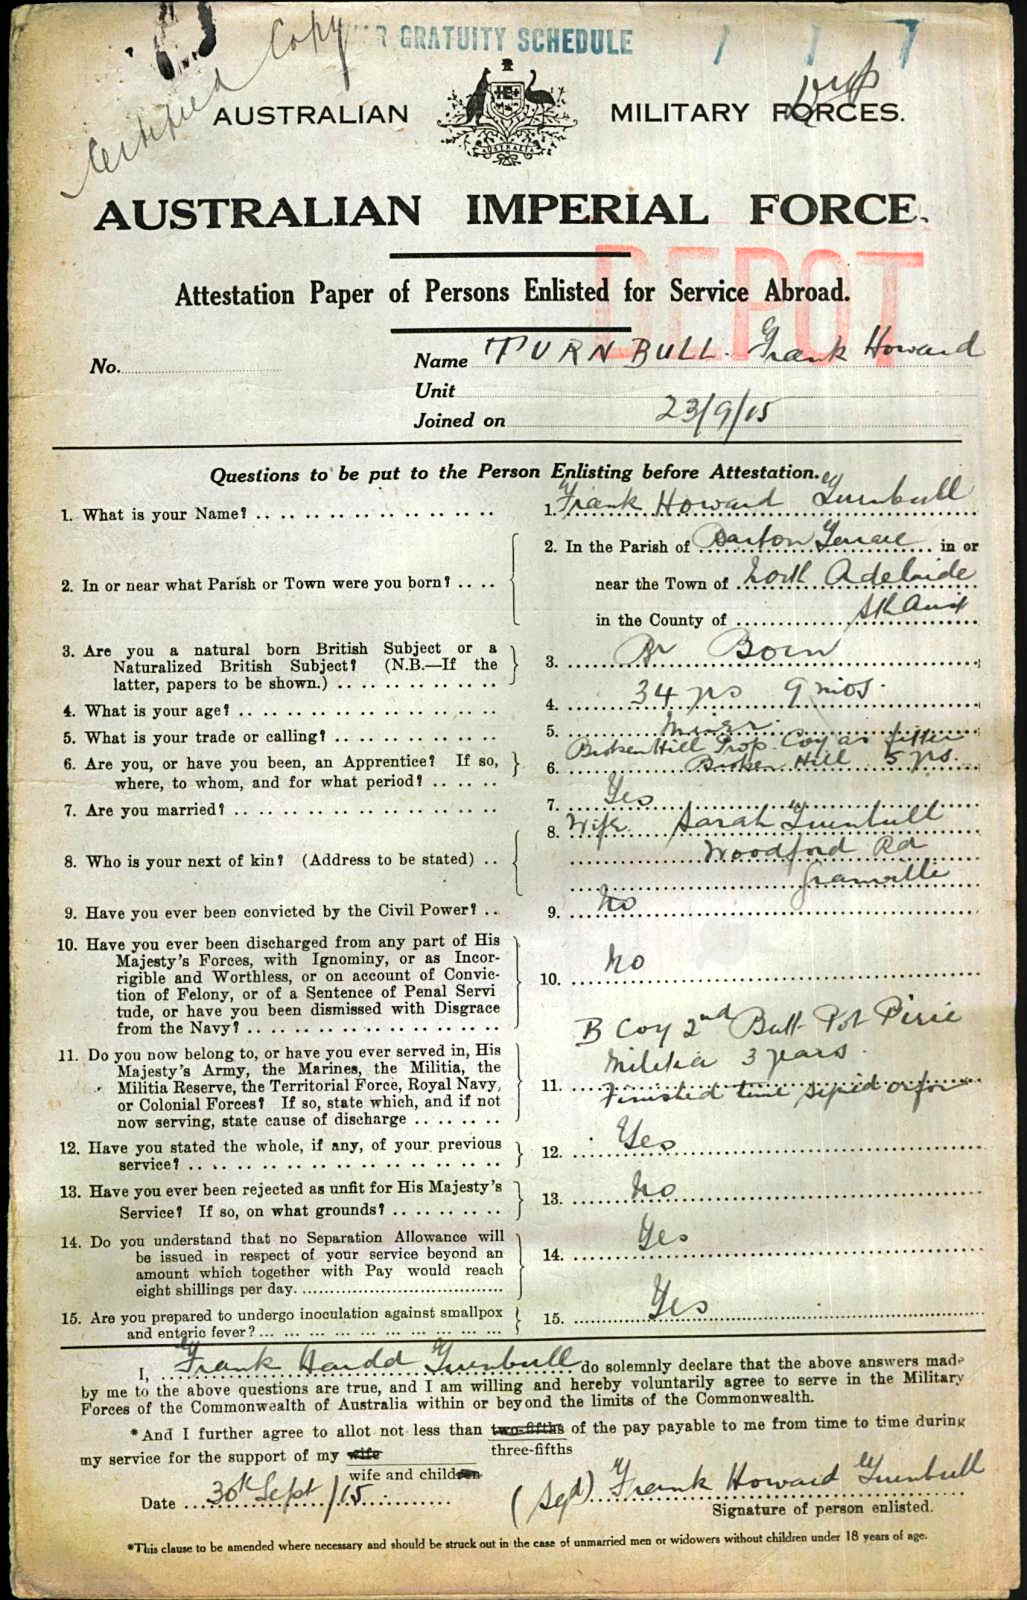 Certified Copy
WAR GRATUITY SCHEDULE
AUSTRALIAN MILITARY FORCES.
AUSTRALIA
AUSTRALIAN IMPERIAL FORCE.
DEPOT
Attestation Paper of Persons Enlisted for Service Abroad.
No. Name TURNBULL. Frank Howard
Unit
Joined on 23/9/15
Questions to be put to the Person Enlisting before Attestation.
1. What is your Name? 1. Frank Howard Turnbull
2. In or near what Parish or Town were you born? 2. In the Parish of Barton Terrace in or
near the Town of North Adelaide
in the County of Sth Aust
3. Are you a natural born British Subject or a
Naturalized British Subject? (N.B.—If the
latter, papers to be shown.) 3. Br Born
4. What is your age? 4. 34 yrs 9 mos.
5. What is your trade or calling? 5. Miner.
6. Are you, or have you been, an Apprentice? If so,
where, to whom, and for what period? 6. Broken Hill Prop. Coy as fitter
Broken Hill 5 yrs.
7. Are you married? 7. Yes
8. Who is your next of kin? (Address to be stated) 8. Wife Sarah Turnbull
Woodford Rd
Granville
9. Have you ever been convicted by the Civil Power? 9. No
10. Have you ever been discharged from any part of His
Majesty's Forces, with Ignominy, or as Incor-
rigible and Worthless, or on account of Convic-
tion of Felony, or of a Sentence of Penal Servi
tude, or have you been dismissed with Disgrace
from the Navy? 10. No
11. Do you now belong to, or have you ever served in, His
Majesty's Army, the Marines, the Militia, the
Militia Reserve, the Territorial Force, Royal Navy,
or Colonial Forces? If so, state which, and if not
now serving, state cause of discharge 11. B Coy 2nd Batt Pot Pirie
Militia 3 years.
Finished time
12. Have you stated the whole, if any, of your previous
service? 12. Yes
13. Have you ever been rejected as unfit for His Majesty's
Service? If so, on what grounds? 13. No
14. Do you understand that no Separation Allowance will
be issued in respect of your service beyond an
amount which together with Pay would reach
eight shillings per day. 14. Yes
15. Are you prepared to undergo inoculation against smallpox
and enteric fever? 15. Yes
I, Frank Turnbull do solemnly declare that the above answers made
by me to the above questions are true, and I am willing and hereby voluntarily agree to serve in the Military
Forces of the Commonwealth of Australia within or beyond the limits of the Commonwealth.
*And I further agree to allot not less than two-fifths of the pay payable to me from time to time during
three-fifths
my service for the support of my wife
wife and children
Date 30th Sept/15 (Sgd) Frank Howard Turnbull
Signature of person enlisted.
*This clause to be amended where necessary and should be struck out in the case of unmarried men or widowers without children under 18 years of age.